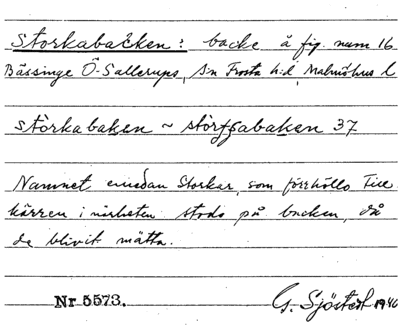 Storkabacken: backe å fig. num 16
Bässinge Ö-Sallerups, Sn Frosta h:d, Malmöhus l
storkabaken ~ 37
Namnet emedan Storkar, som förehöllo till
kärren i närheten stodo på backen, då
de blivit mätta.
Nr 5573.
G. Sjöstedt 1946